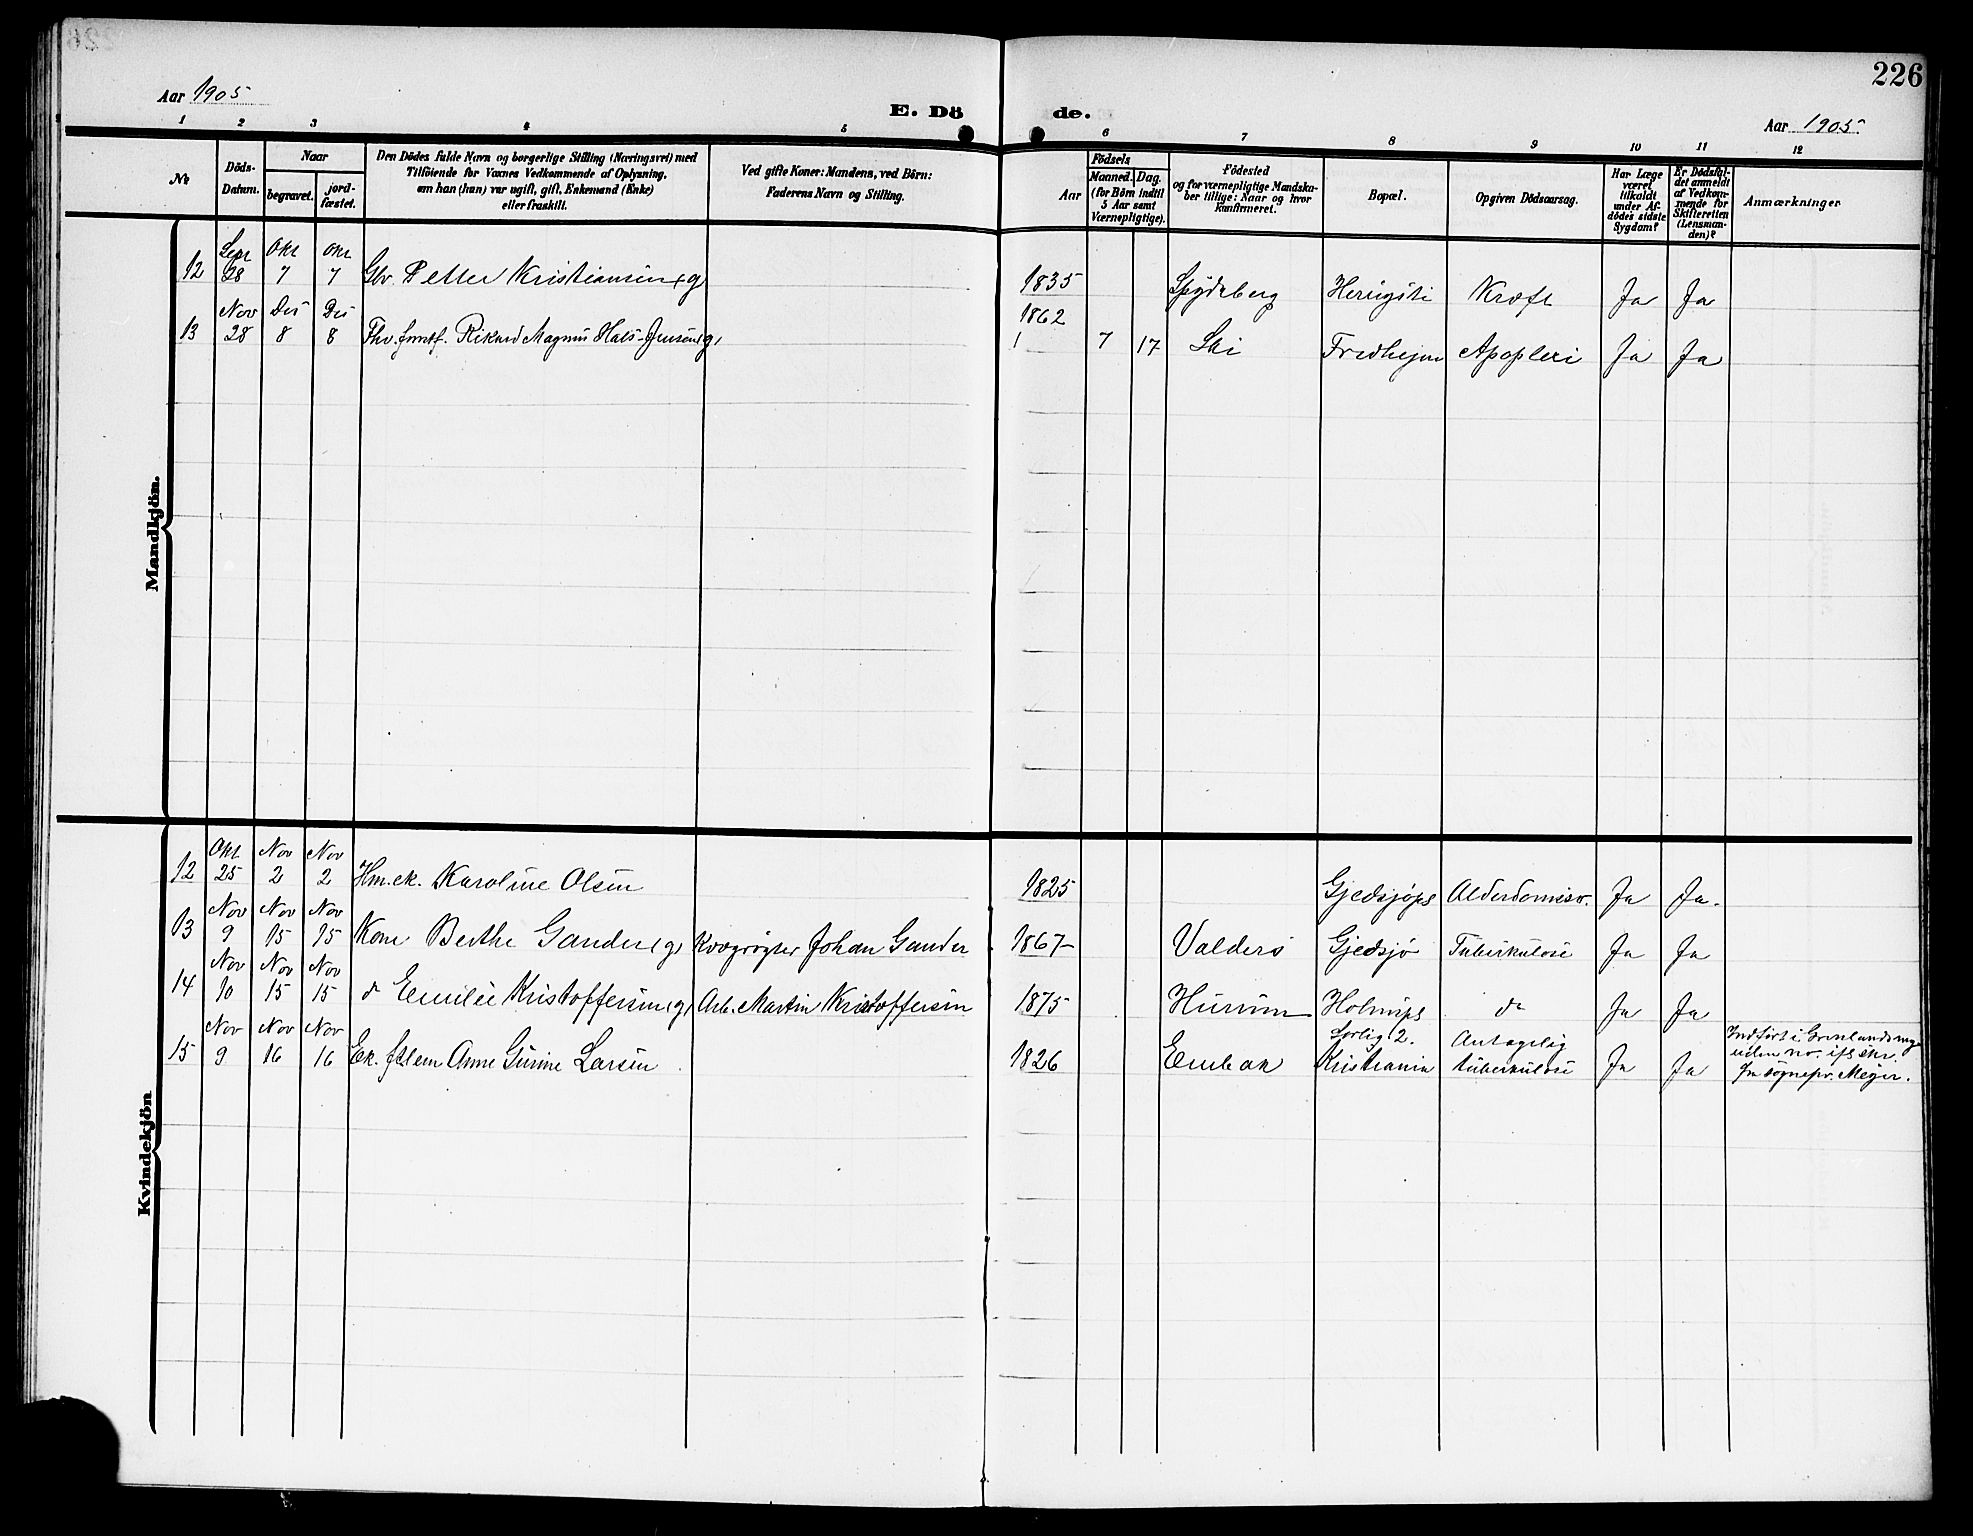 226
Aar 1905
E. Döde.
Aar 1905.
1 2 3 4 5 6 7 8 9 10 11 12
No.
Döds-Datum.
Naar
begravet.
jord-fæstet.
Den Dödes fulde Navn og borgerlige Stilling (Næringsvei) med
Tilföiende for Voxnes Vedkommende af Oplysning,
om han (hun) var ugift, gift, Enkemand (Enke)
eller fraskilt.
Ved gifte Koner: Mandens, ved Börn:
Faderens Navn og Stilling.
Födsels
Aar
Maaned. Dag.
(for Börn indtil
5 Aar samt
Værnepligtige).
Födested
og for værnepligtige Mandska-
ber tillige: Naar og hvor
konfirmeret.
Bopæl.
Opgiven Dödsaarsag.
Har Læge
været
tilkaldt
under Af-
dödes sidste
Sygdom?
Er Dödsfal-
det anmeldt
af Vedkom-
mende for
Skifteretten
(Lensman-
den)?
Anmærkninger
Mandkjön.
12 Sept 28 Okt 7 Okt 7 Gbr. Petter Kristiansen (g) 1835 Spydeberg Kræft Ja Ja
13 Nov 28 Des 8 Des 8 Fhv. Rikard Magnus Hals-Jensen (g) 1862 7 17 Ski Fredhejm Apoplexi Ja Ja
Kvindekjön
12 Okt 25 Nov 2 Nov 2 Hm.ek. Karoline Olsen 1825 Gjedsjøps Alderdomssv. Ja Ja.
13 Nov 9 Nov 15 Nov 15 Kone Berthe Gander (g) Kvægrøgter Johan Gander 1867 Valders Gjedsjø Tuberkulose Ja Ja
14 Nov 10 Nov 15 Nov 15 do Emilie Kristoffersen (g) Arb. Martin Kristoffersen 1875 Hurum Holmeps do Ja Ja
15 Nov 9 Nov 16 Nov 16 Ek. f. lem Anne Gurine Larsen 1826 Enebak Sorlig 2. Kristiania Antagelig tuberkulose Ja Ja
Indført i Grønlands mge
uden no. ifl skr.
fra sognepr. Mejer.